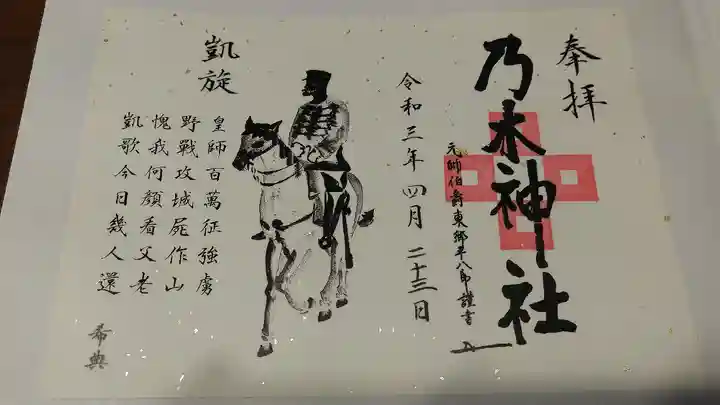 奉拝
乃木神社
元帥伯爵東郷平八郎謹書
令和三年四月二十三日
凱旋
皇師百萬征強虜
野戰攻城屍作山
愧我何顔看父老
凱歌今日幾人還
希典